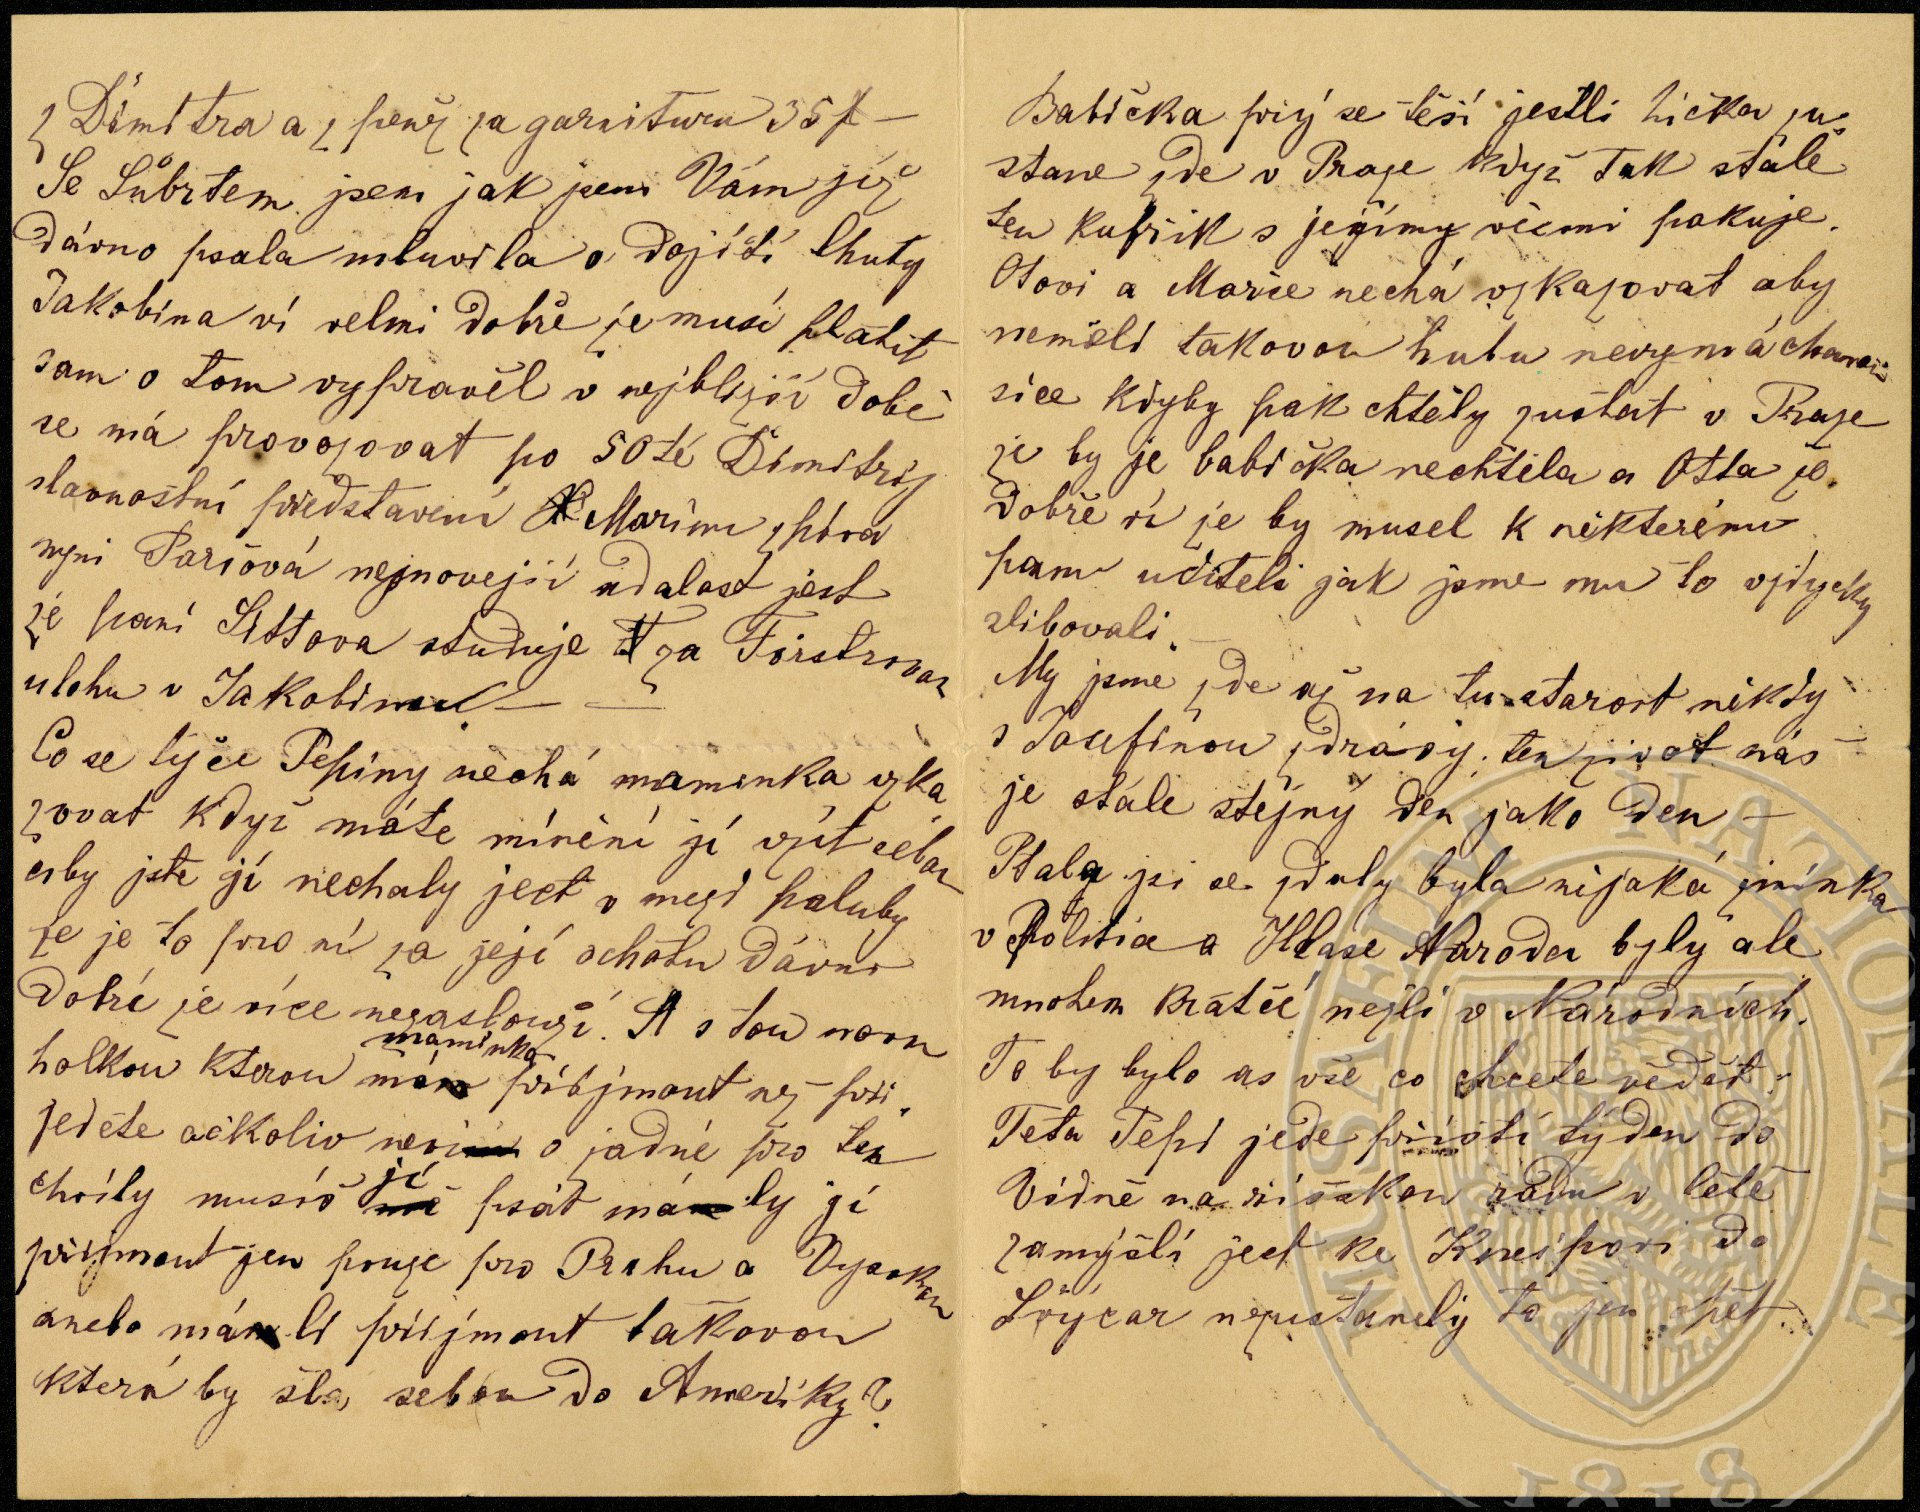 z Dimitra a z penz za garnituru 35 f –
Se Šubrtem jsem jak jsem Vám jíž
dávno psala mluvila o dojítí lhuty
Jakobina ví velmi dobře že musí platit
sam o tom vypravěl v nejbližší době
se má provozovat po 50té Dimitrij
slavnostní představení Marinu zpívá
nyni Paršová nejnovejší udalost jest
žé paní Sittova studuje za Foirstrovou
ulohu v Jakobinu. — —
Co se týče Pepiny nechá maminka vzka
zovat když máte mínění jí vzít sebou
by jste jí nechaly ject v mezi paluby
že je to pro ní za její ochotu dávno
dobré že více nezaslouží. A s tou novou
holkou kterou maminka má přijmout než při
jedete ačkoliv neví o žadné pro tu
chvíly musíš jí psát má ly jí
přijmout jen pouze pro Prahu a Vysokou
anebo má li přijmout takovou
která by šla sebou do Ameriky?
Babička prý se těší jestli hička zu-
stane zde v Praze když tak stále
ten kufřík s jejímy věcmi pakuje.
Otovi a Mařce nechá vzkazovat aby
neměli takovou hubu nevymáchanou
sice kdyby pak chtěly zustat v Praze
že by je babička nechtěla a Otta že
dobře ví že by musel k některému
panu učiteli jak jsme mu to vždycky
slibovali. —
My jsme zde až na tu starost někdy
s Josefínou zdrávy, ten život nás
je stále stejný den jako den –
Ptala jsi se zdaly byla nijaká zmínka
v Politia a Hlase Národa byly ale
mnohem kratčí nežli v Národních.
To by bylo as vše co chcete vědět.
Teta Pepi jede příští týden do
Vídně na říšskou radu v létě
zamýšlí ject ke Kneipovi do
Švýcar nezustanely to jen opět
MUSAEUM NATIONALE
1818